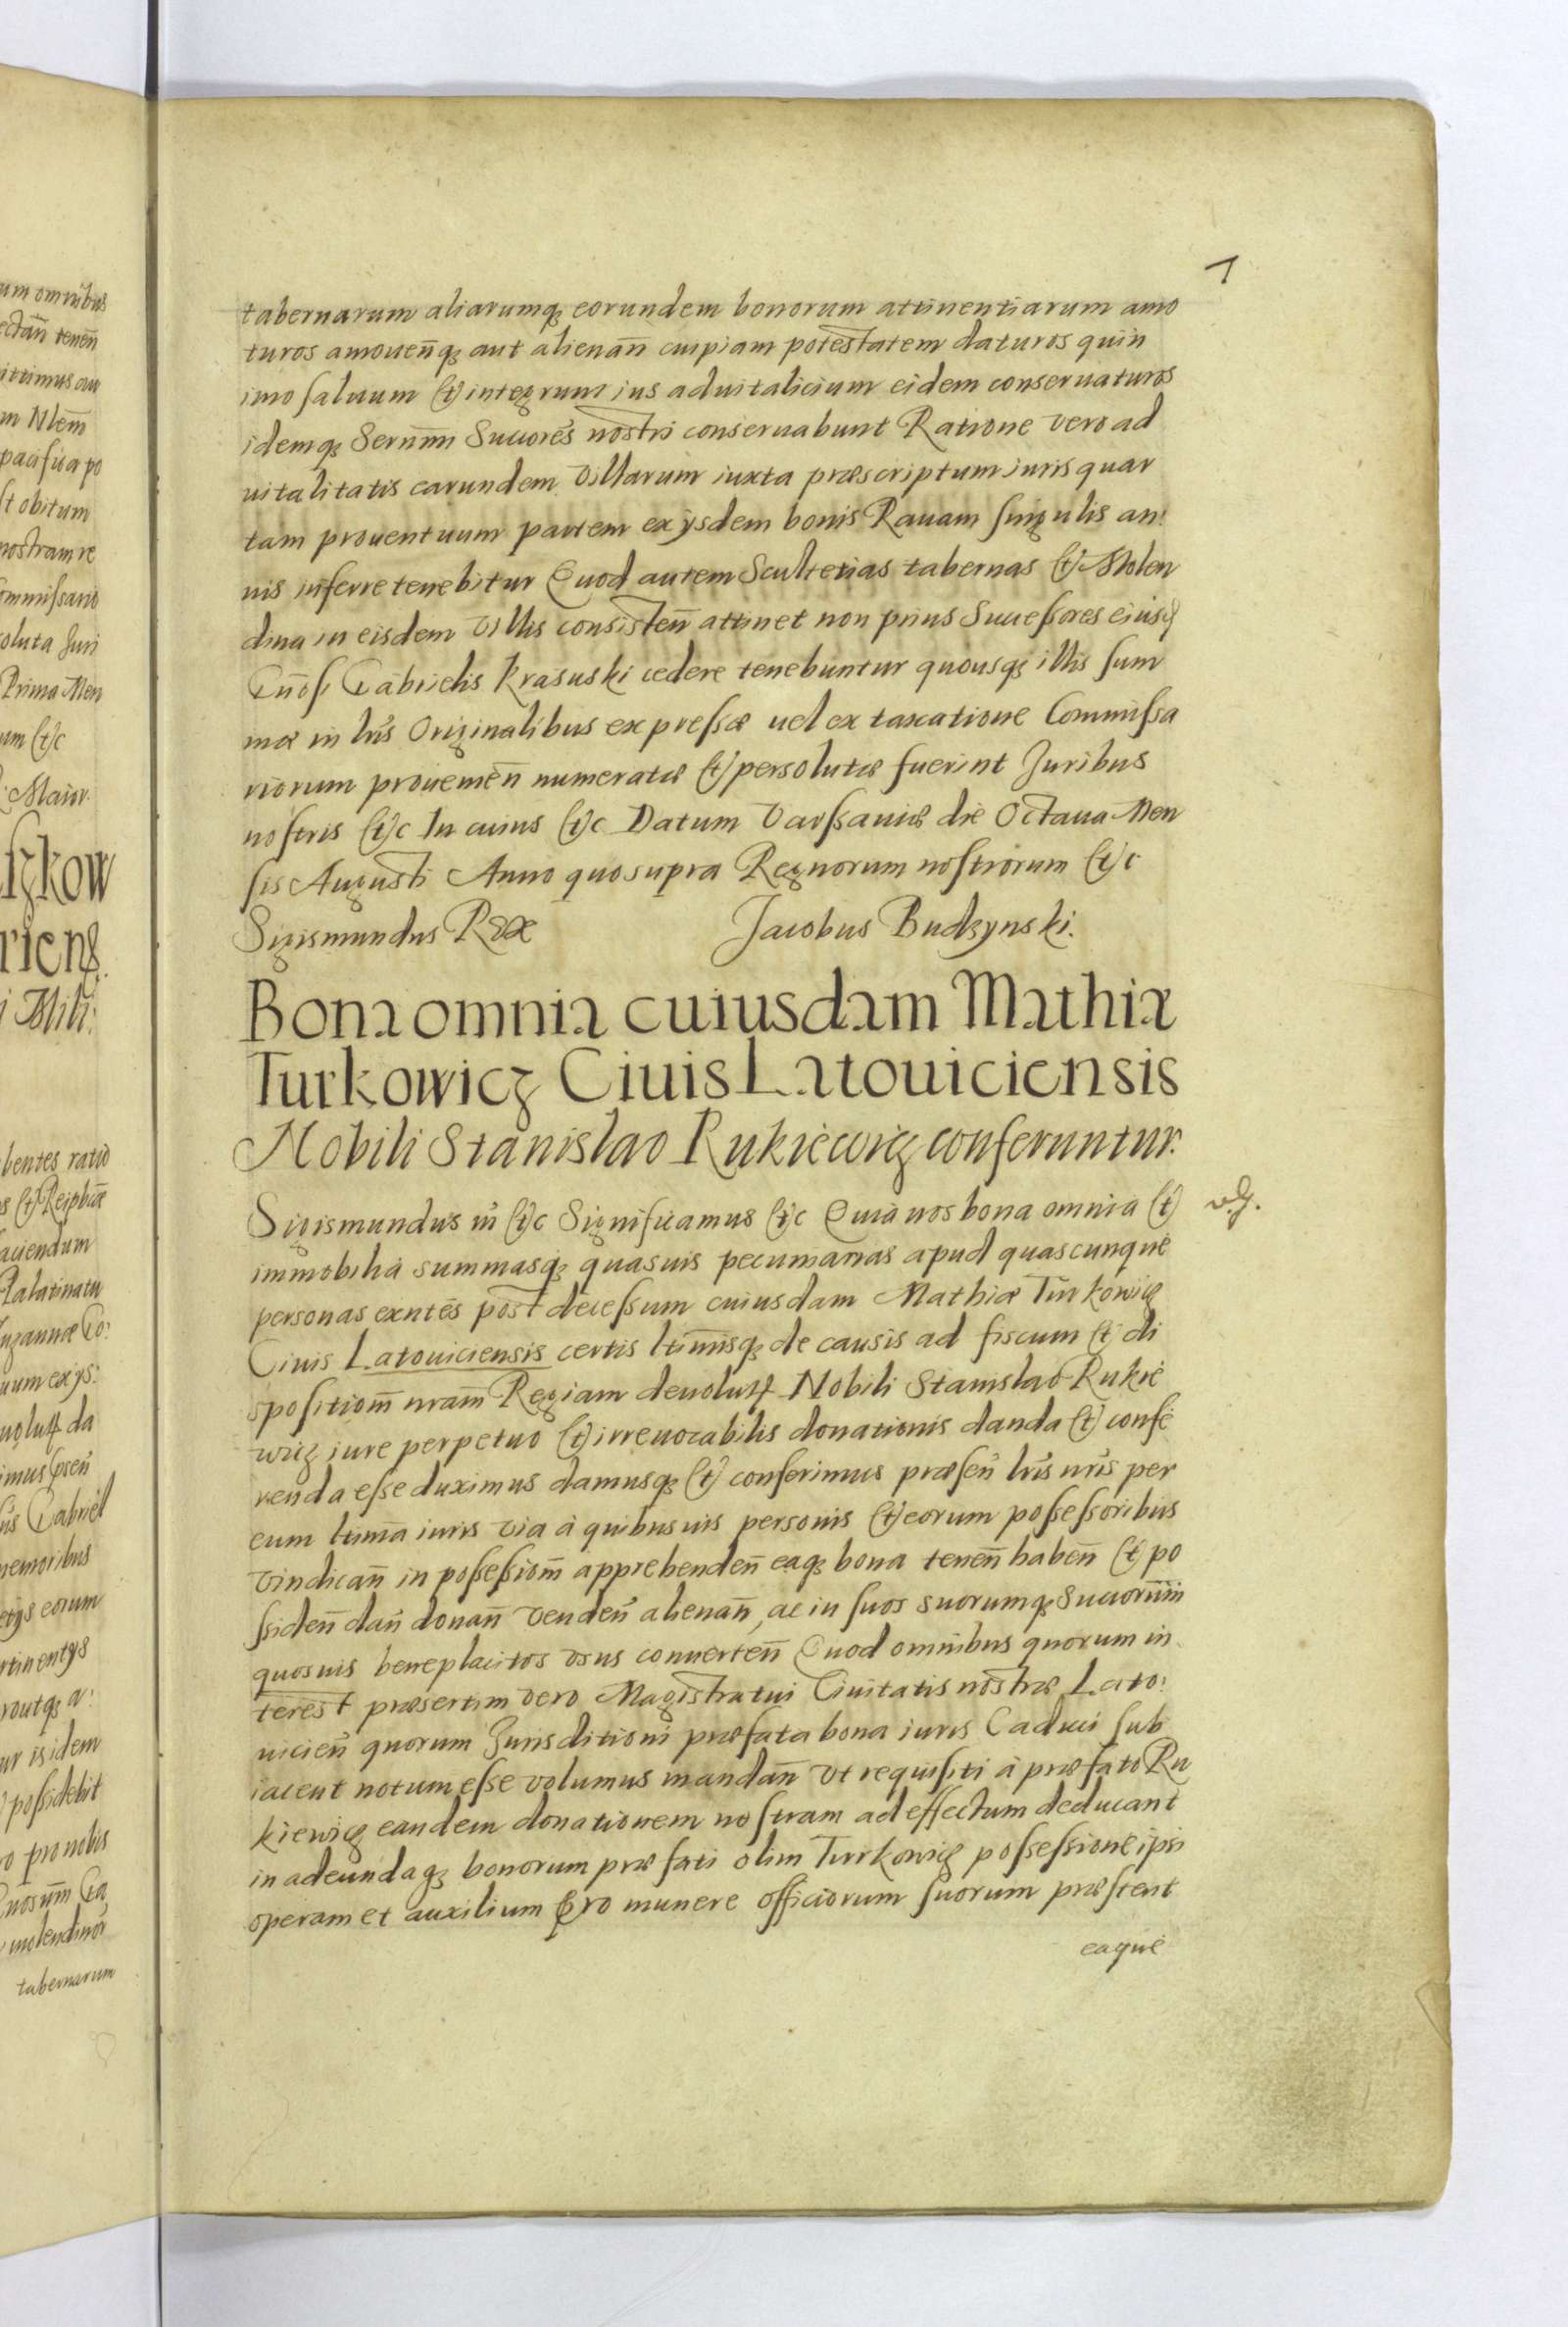 1
tabernarum aliarumq₃ eorundem bonorum attinentiarum amo
turos amouen̄q₃ aut alienan̄ cuipiam potestatem daturos quin
imo saluum et integrum ius aduitalicium eidem conseruaturos
idemq₃ Sernm̄ Succores nostri conseruabunt Ratione vero ad
uitalitatis earundem villarum iuxta præscriptum iuris quar
tam prouentuum partem ex ijsdem bonis Rauam singulis an:
nis inferre tenebitur Quod autem Scultetias tabernas et Molen
dina in eisdem villis consisten̄ attinet non prius Successores eiusd
Gn̄osi Gabrielis Krasuski cedere tenebuntur quousq₃ illis sum
mæ in lr̄is Originalibus expressæ uel ex taxatione Commissa
riorum prouenien̄ numeratæ et persolutæ fuerint Juribus
nostris etc In cuius etc Datum Varssauiæ die Octaua Men
sis Augusti Anno quo supra Regnorum nostrorum etc
Sigismundus Rex Jacobus Budzynski.
Bona omnia cuiusdam Mathiæ
Turkowicz Ciuis Latouiciensis
Nobili Stanislao Rukiewicz conferuntur.
Sigismundus iii etc Significamus etc Quia nos bona omnia et
immobilia summasq₃ quasuis pecuniarias apud quascunque
personas exn̄tes post decessum cuiusdam Mathiæ Turkowicz
Ciuis Latouiciensis certis ltimisq₃ de causis ad fiscum et di
spositiom̄ nram̄ Regiam deuoluta Nobili Stanislao Rukie
wicz iure perpetuo et irreuocabilis donationis danda et confe
renda esse duximus damusq₃ et conferimus præsen̄ lr̄is nr̄is per
eum ltima iuris via à quibusuis personis et eorum possessoribus
vindican̄ in possessiom̄ apprehenden̄ eaq₃ bona tenen̄ haben̄ et po
ssiden̄ dan̄ donan̄ venden̄ alienan̄, ac in suos suorumq₃ Succorum̄
quosuis beneplacitos vsus conuerten̄ Quod omnibus quorum in
terest præsertim vero Magistratui Ciuitatis nostræ Lato:
uicien̄ quorum Jurisditioni præfata bona iuris Caduci sub
iacent notum esse volumus mandan̄ vt requisiti à præfato Ru
kiewicz eandem donationem nostram ad effectum deducant
in adeundaq₃ bonorum præfati olim Turkowicz possessione ipsi
operam et auxilium pro munere officiorum suorum præstent
eaque